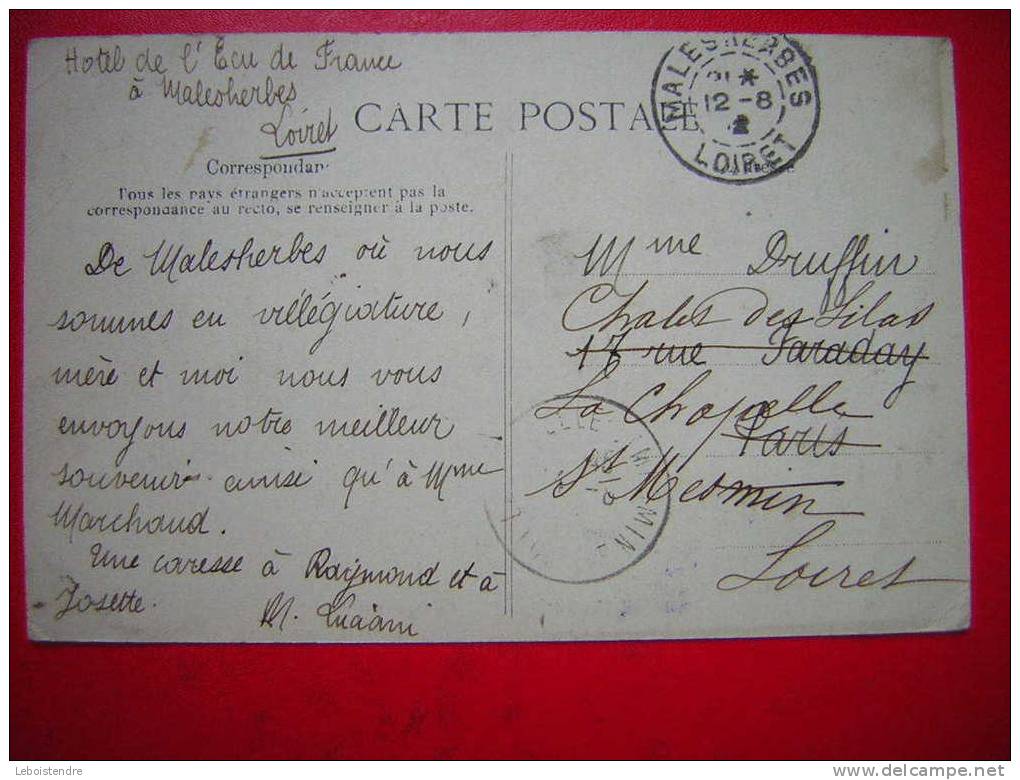 Hotel de l'Ecu de France
à Malesherbes
Loiret
CARTE POSTALE
Correspondan
Tous les pays étrangers n'acceptent pas la
correspondance au recto, se renseigner à la poste.
De Malesherbes où nous
sommes en villégiature,
mère et moi nous vous
envoyons notre meilleur
souvenir ainsi qu'à Mme
Marchand.
Une caresse à Raymond et à
Josette.
MALESHERBES
12-8
LOIRET
Mme Druffin
Chalet des Lilas
17 rue Faraday
La Chapelle
Paris
St Mesmin
Loiret
Leboistendre
delcampe.net